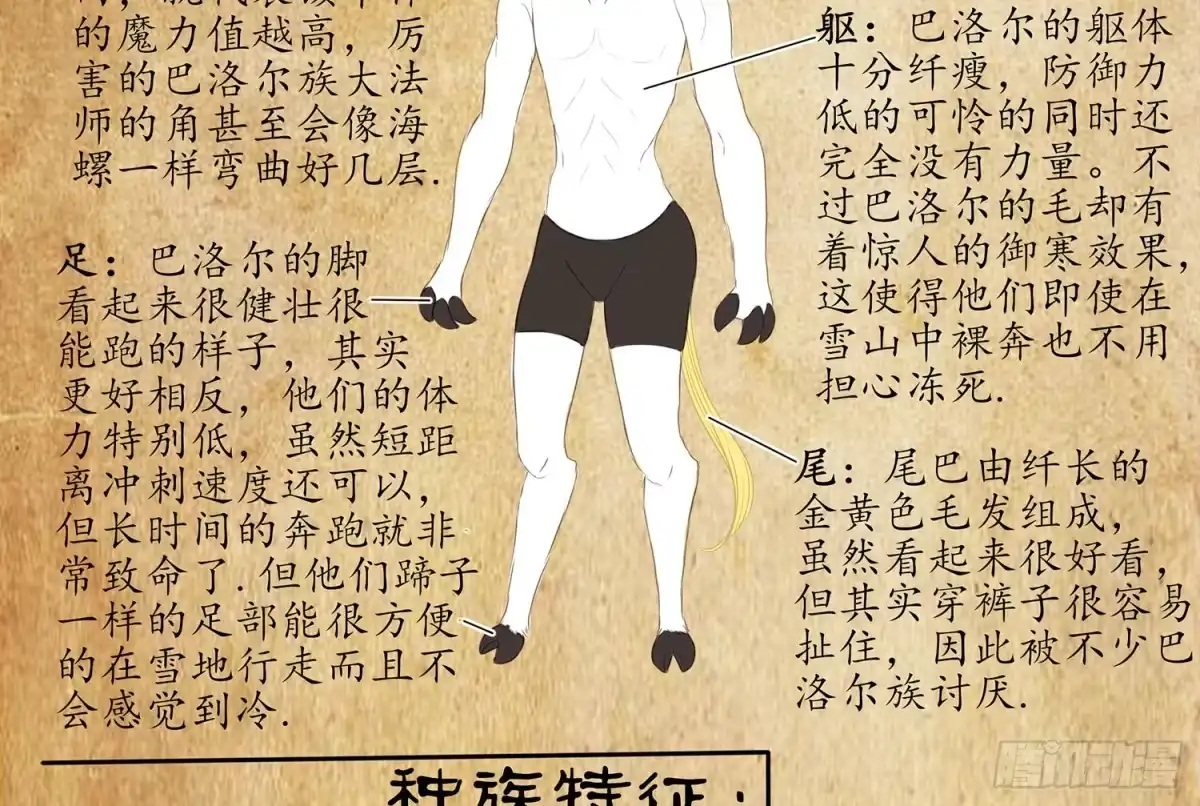 的魔力值越高，厉
害的巴洛尔族大法
师的角甚至会像海
螺一样弯曲好几层.
躯：巴洛尔的躯体
十分纤瘦，防御力
低的可怜的同时还
完全没有力量。不
过巴洛尔的毛却有
着惊人的御寒效果，
这使得他们即使在
雪山中裸奔也不用
担心冻死.
足：巴洛尔的脚
看起来很健壮很
能跑的样子，其实
更好相反，他们的体
力特别低，虽然短距
离冲刺速度还可以，
但长时间的奔跑就非
常致命了.但他们蹄子
一样的足部能很方便
的在雪地行走而且不
会感觉到冷.
尾：尾巴由纤长的
金黄色毛发组成，
虽然看起来很好看，
但其实穿裤子很容易
扯住，因此被不少巴
洛尔族讨厌.
种族特征：
腾讯动漫